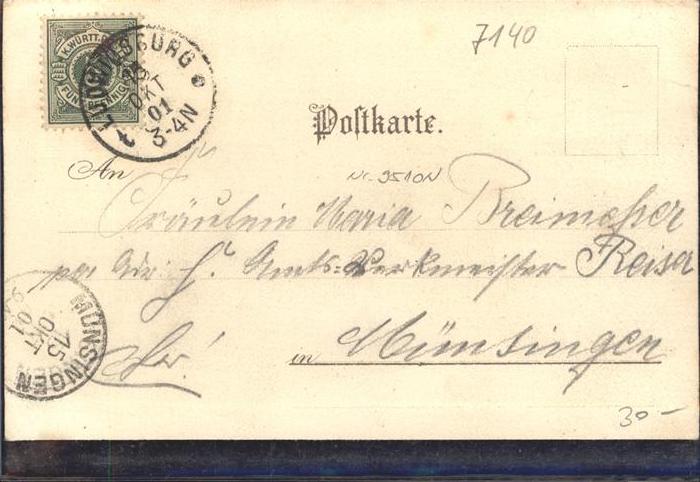 7140
K. WÜRTT. P
FÜNF PFENNIG
LUDWIGSBURG
OKT
01
3-4N
Postkarte.
An
Nr. 9510N
Fräulein Maria Breimesser
Adr. H. Amts-Werkmeister Reiser
in Münsingen
MÜNSINGEN
15
OKT
01
30-